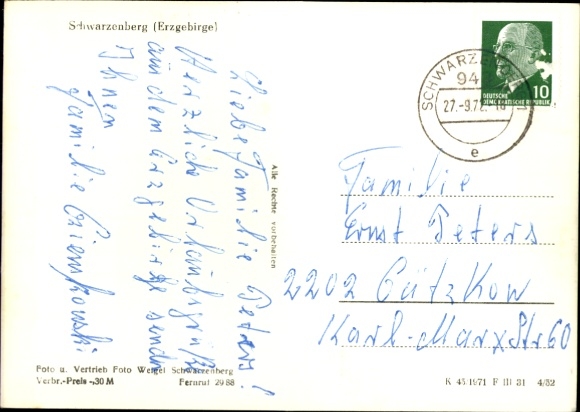 Schwarzenberg (Erzgebirge)
Liebe Familie Peters!
Herzliche Urlaubsgrüße
aus dem Erzgebirge sendet
Ihnen
Familie
Alle Rechte vorbehalten
DEUTSCHE
DEMOKRATISCHE REPUBLIK
10
94
27.-9.72
e
Familie
Ernst Peters
2202 Gützkow
Karl-Marx Str 60
Foto u. Vertrieb Foto Weigel Schwarzenberg
Verbr.-Preis -,30 M Fernruf 2988
K 45/1971 F III 31 4/52